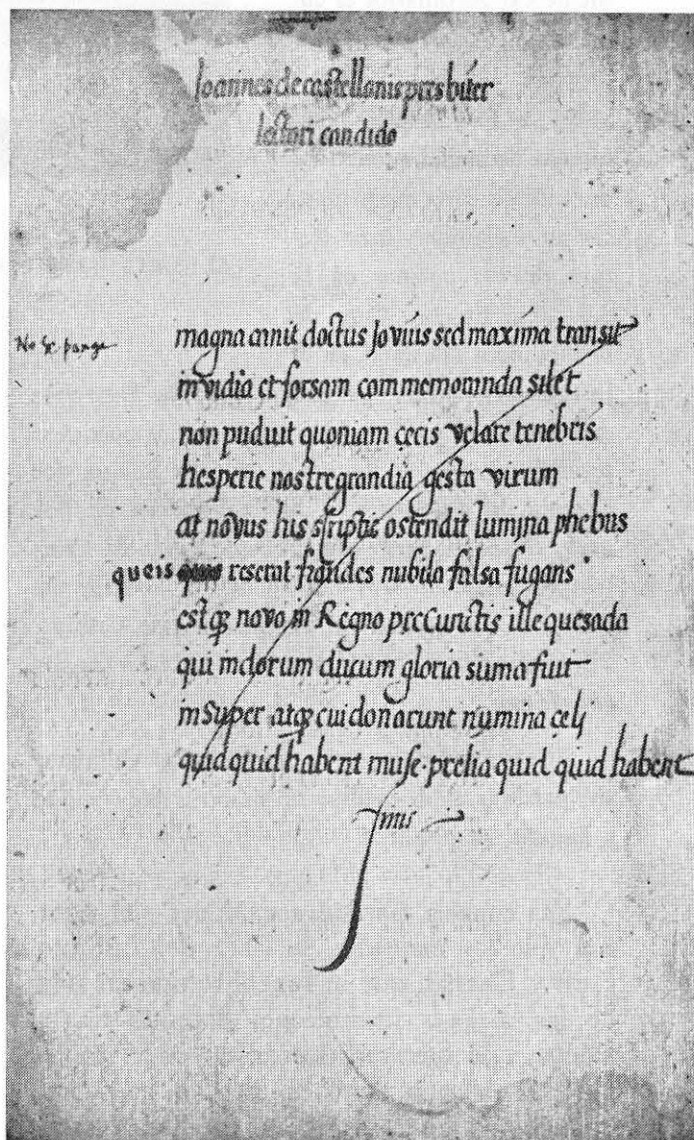 Joannes de castellanis presbiter
lectori candido
No se ponga
magna canit doctus Jovius sed maxima transit
invidia et forsam commemoranda silet
non puduit quoniam cęcis velare tenebris
hesperie nostre grandia gesta virum
at novus his scriptis ostendit lumina phebus
queis quas reserat fraudes nubila falsa fugans
estqꝫ novo in Regno pre Cunctis ille quesada
qui indorum ducum gloria suma fuit
in Super atqꝫ cui donarunt numina cęli
quid quid habent muse. prelia quid quid habent
finis